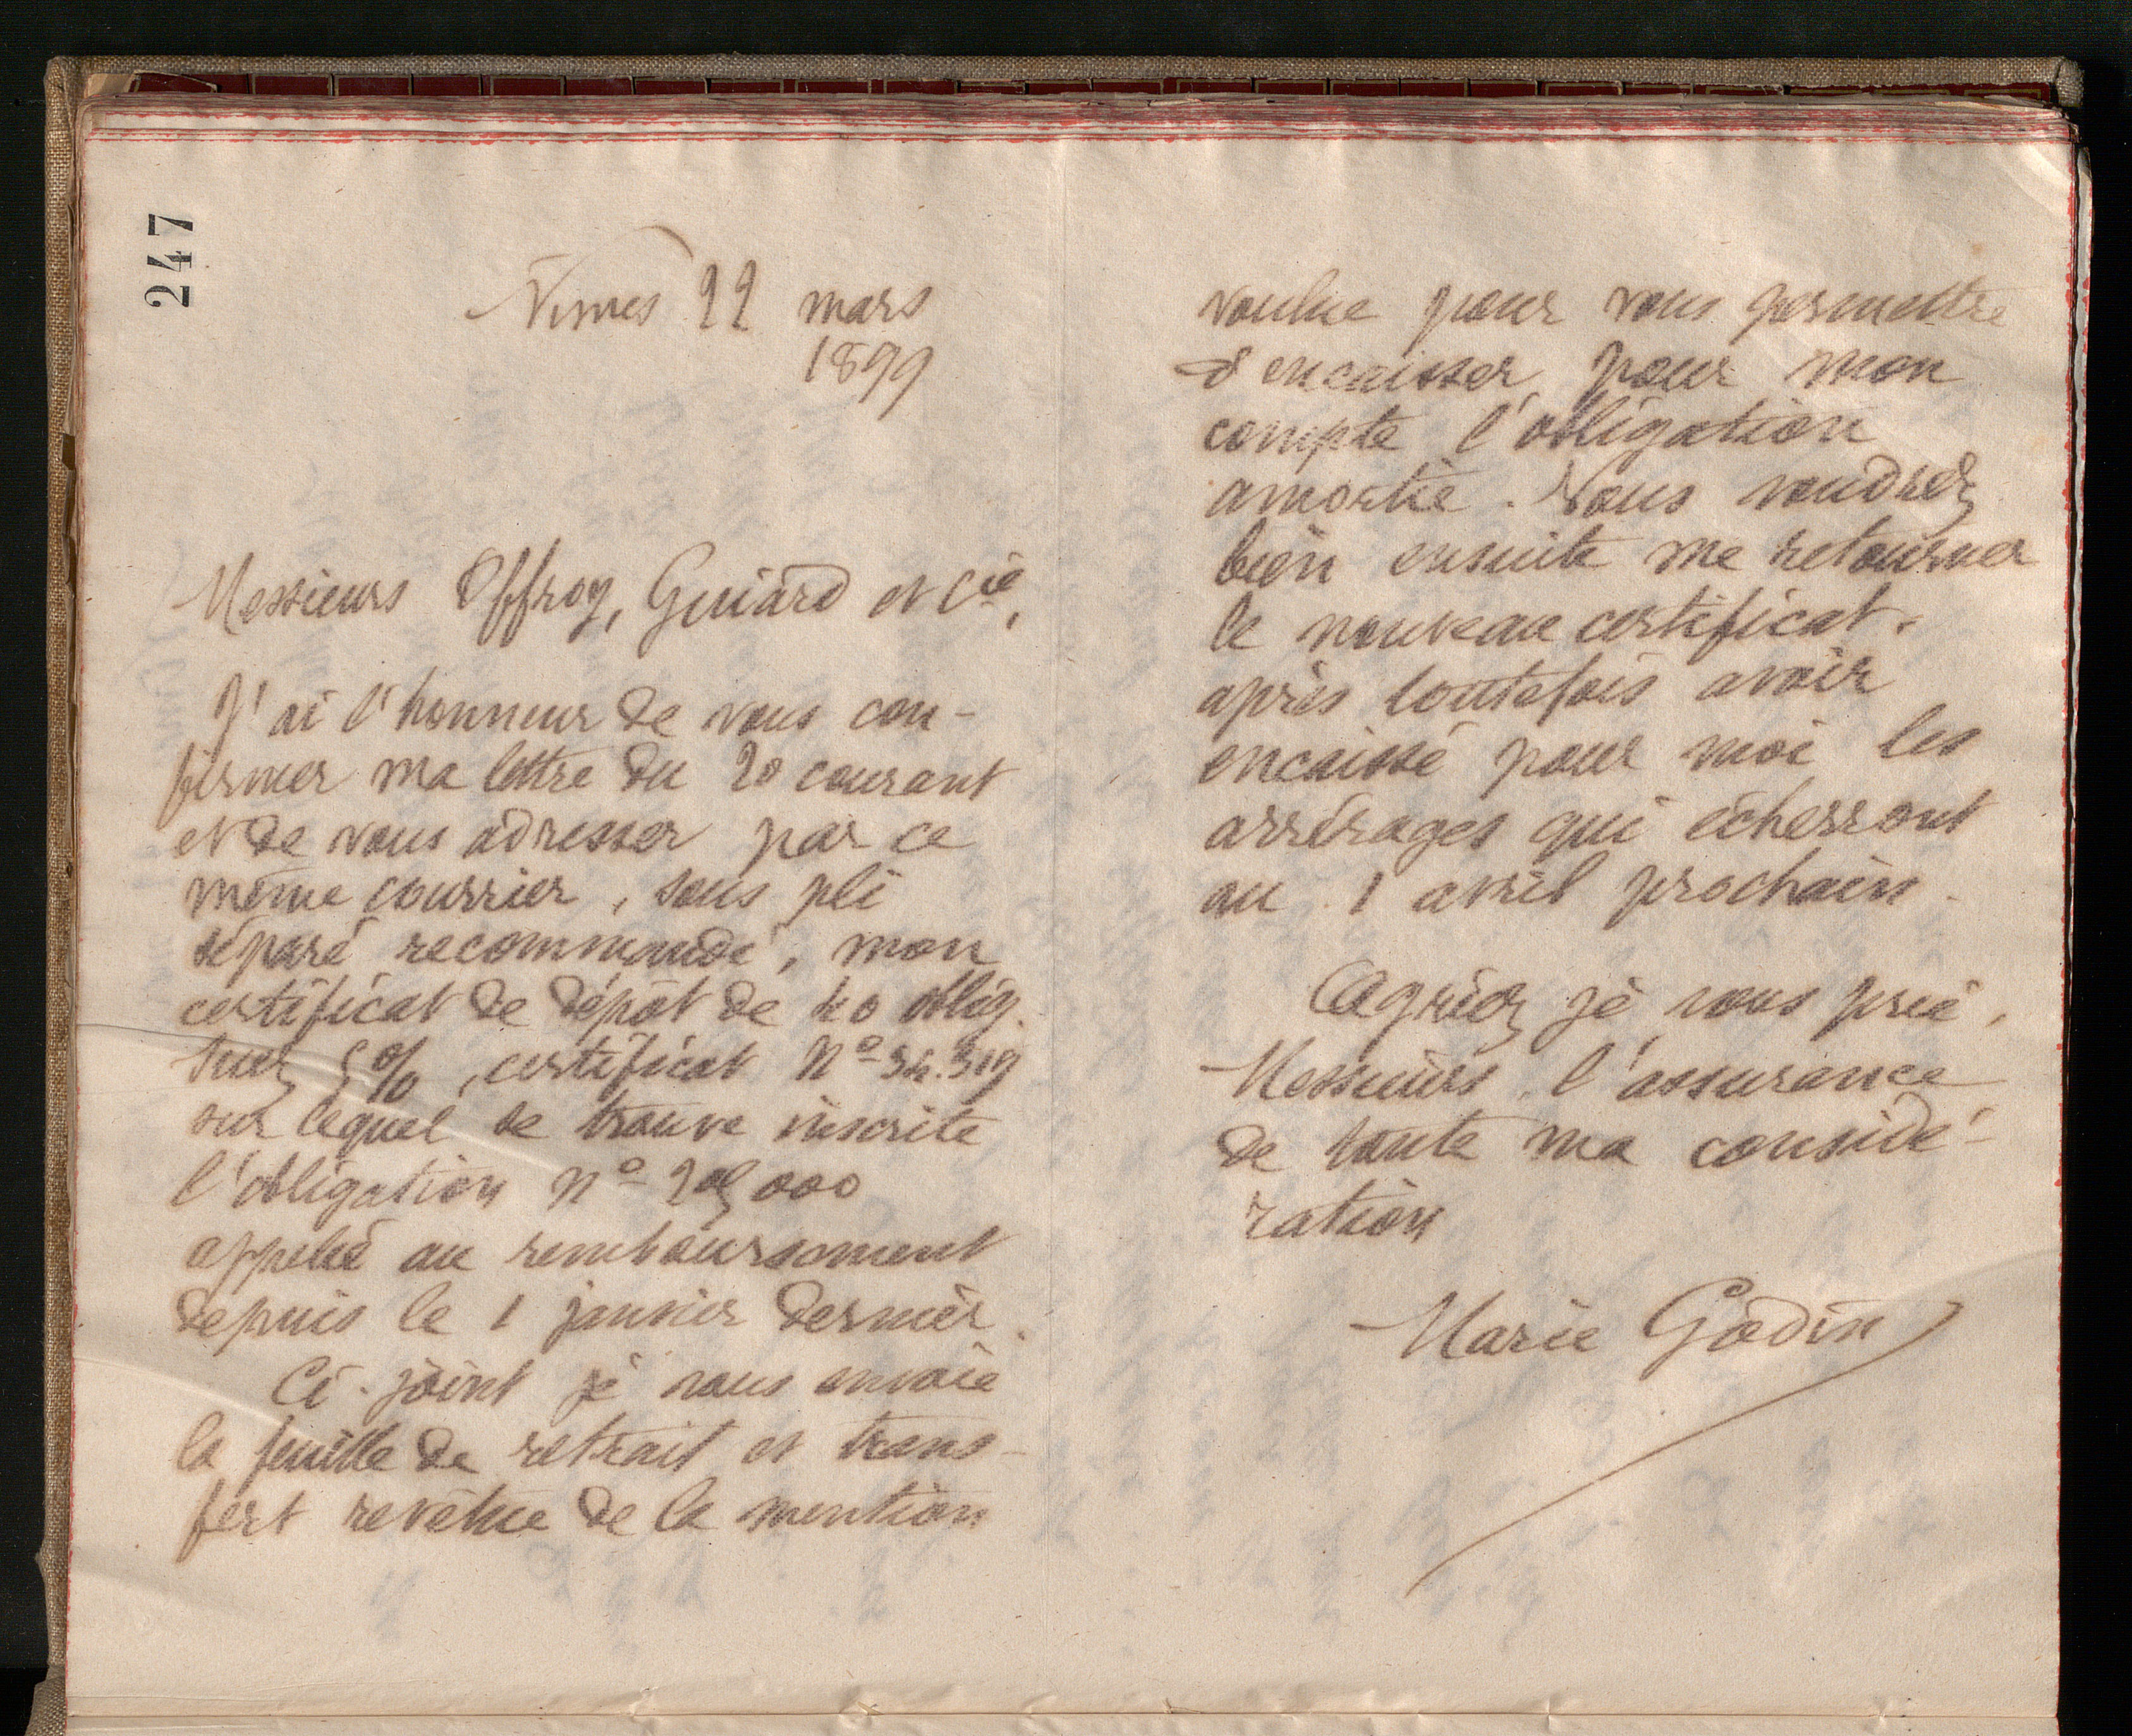 247
Nîmes 22 mars
1899
Messieurs Offroy, Guiard et Cie,
J'ai l'honneur de vous con-
firmer ma lettre du 20 courant
et de vous adresser par ce
même courrier, sous pli
séparé recommandé, mon
certificat de dépôt de 40 oblig.
Suez 5%, certificat No 34.319
sur lequel se trouve inscrite
l'obligation No 205,000
appelée au remboursement
depuis le 1 janvier dernier.
Ci-joint je vous envoie
la feuille de retrait et trans-
fert revêtue de la mention
voulue pour vous permettre
d'encaisser pour mon
compte l'obligation
amortie. Vous voudrez
bien ensuite me retourner
le nouveau certificat.
après toutefois avoir
encaissé pour moi les
arrérages qui écherront
au 1 avril prochain.
Agréez je vous prie,
Messieurs, l'assurance
de toute ma considé-
ration
Marie Godin